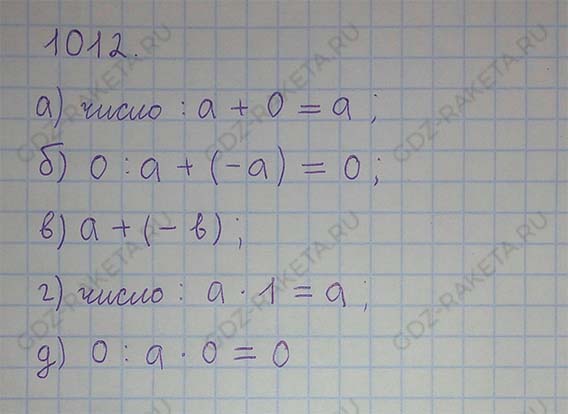 1012.
а) число : а + 0 = а ;
б) 0 : а + (- а) = 0 ;
в) а + (- в) ;
г) число : а · 1 = а ;
д) 0 : а · 0 = 0
GDZ-RAKETA.RU
GDZ-RAKETA.RU
GDZ-RAKETA.RU
GDZ-RAKETA.RU
GDZ-RAKETA.RU
GDZ-RAKETA.RU